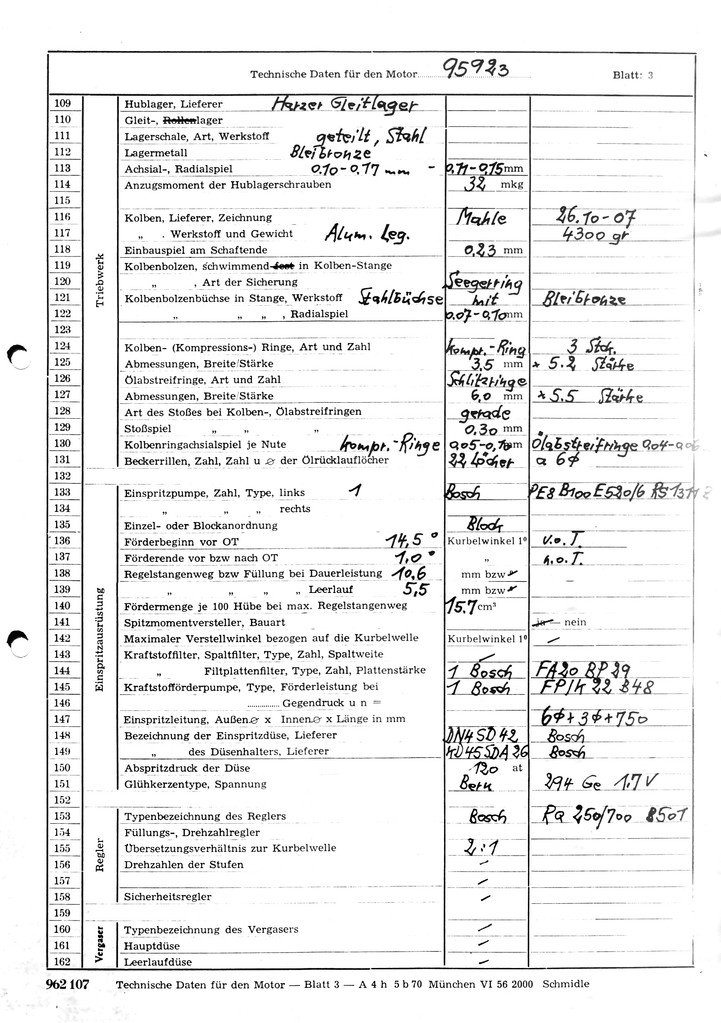 Technische Daten für den Motor 95923 Blatt: 3
109 Hublager, Lieferer Harzer Gleitlager
110 Gleit-, Rollenlager
111 Lagerschale, Art, Werkstoff geteilt, Stahl
112 Lagermetall Bleibronze
113 Achsial-, Radialspiel 0.10-0.17 mm - 0,11-0,15 mm
114 Anzugsmoment der Hublagerschrauben 32 mkg
115
116 Kolben, Lieferer, Zeichnung Mahle 26.10-07
117 „ . Werkstoff und Gewicht Alum. Leg. 4300 gr
118 Einbauspiel am Schaftende 0,23 mm
119 Kolbenbolzen, schwimmend fest in Kolben-Stange
120 „ , Art der Sicherung Seegerring
121 Kolbenbolzenbüchse in Stange, Werkstoff Stahlbüchse mit Bleibronze
122 „ „ „ , Radialspiel 0.07-0.10 mm
123
124 Kolben- (Kompressions-) Ringe, Art und Zahl Kompr.-Ring 3 Stck.
125 Abmessungen, Breite/Stärke 3,5 mm * 5.2 Stärke
126 Ölabstreifringe, Art und Zahl Schlitzringe
127 Abmessungen, Breite/Stärke 6,0 mm * 5.5 Stärke
128 Art des Stoßes bei Kolben-, Ölabstreifringen gerade
129 Stoßspiel „ „ „ 0.30 mm
130 Kolbenringachsialspiel je Nute Kompr.-Ringe mm Ölabstreifringe
131 Beckerrillen, Zahl, Zahl u ⌀ der Ölrücklauflöcher 22 Löcher a 6⌀
132
133 Einspritzpumpe, Zahl, Type, links 1 Bosch PE8 B100 E520/6
134 „ „ „ rechts
135 Einzel- oder Blockanordnung Block
136 Förderbeginn vor OT 14,5° Kurbelwinkel 1° v.o.T.
137 Förderende vor bzw nach OT 1,0° „ h.o.T.
138 Regelstangenweg bzw Füllung bei Dauerleistung 10,6 mm bzw
139 „ „ „ „ Leerlauf 5,5 mm bzw
140 Fördermenge je 100 Hübe bei max. Regelstangenweg 15.7 cm³
141 Spitzmomentversteller, Bauart ja — nein
142 Maximaler Verstellwinkel bezogen auf die Kurbelwelle Kurbelwinkel 1° -
143 Kraftstoffilter, Spaltfilter, Type, Zahl, Spaltweite -
144 „ Filtplattenfilter, Type, Zahl, Plattenstärke 1 Bosch FA20 BP29
145 Kraftstofförderpumpe, Type, Förderleistung bei 1 Bosch FP/K 22 B48
146 ............... Gegendruck u n =
147 Einspritzleitung, Außen⌀ x Innen⌀ x Länge in mm 6⌀+3⌀+750
148 Bezeichnung der Einspritzdüse, Lieferer DN4SD42 Bosch
149 „ des Düsenhalters, Lieferer KD45SDA26 Bosch
150 Abspritzdruck der Düse 120 at
151 Glühkerzentype, Spannung Beru 294 Ge 1.7V
152
153 Typenbezeichnung des Reglers Bosch RQ 250/700
154 Füllungs-, Drehzahlregler
155 Übersetzungsverhältnis zur Kurbelwelle 2:1
156 Drehzahlen der Stufen -
157 -
158 Sicherheitsregler -
159
160 Typenbezeichnung des Vergasers -
161 Hauptdüse -
162 Leerlaufdüse -
Triebwerk
Einspritzausrüstung
Regler
Vergaser
962 107 Technische Daten für den Motor — Blatt 3 — A 4 h 5 b 70 München VI 56 2000 Schmidle